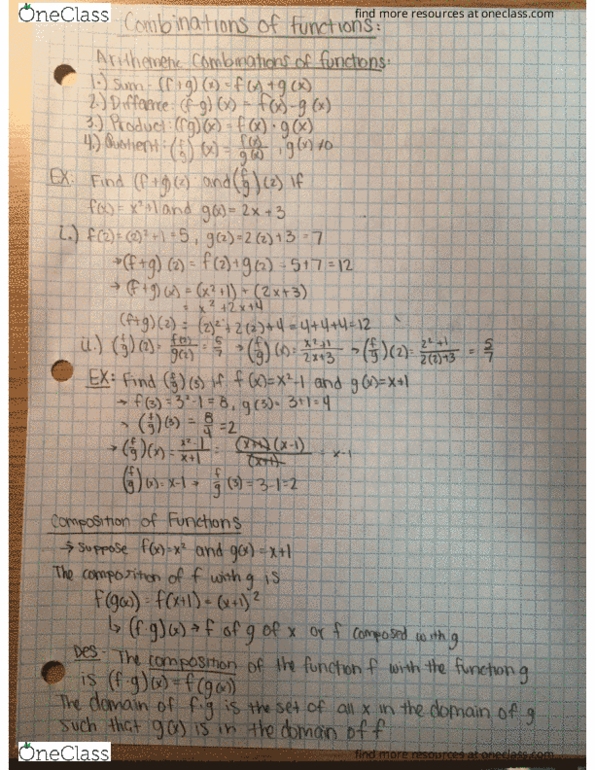 OneClass
find more resources at oneclass.com
Combinations of functions:
Arithmetic Combinations of functions:
1.) Sum: (f+g)(x) = f(x)+g(x)
2.) Diffrence: (f-g)(x) = f(x)-g(x)
3.) Product: (fg)(x) = f(x)·g(x)
4.) Quotient: (f/g)(x) = f(x)/g(x), g(x)≠0
EX: Find (f+g)(2) and (f/g)(2) if
f(x) = x²+1 and g(x) = 2x+3
i.) f(2) = (2)²+1 = 5, g(2) = 2(2)+3 = 7
→ (f+g)(2) = f(2)+g(2) = 5+7 = 12
→ (f+g)(x) = (x²+1) + (2x+3)
= x²+2x+4
(f+g)(2) = (2)²+2(2)+4 = 4+4+4 = 12
ii.) (f/g)(2) = f(2)/g(2) = 5/7 → (f/g)(x) = x²+1/2x+3 → (f/g)(2) = 2²+1/2(2)+3 = 5/7
EX: Find (f/g)(3) if f(x)=x²-1 and g(x)=x+1
→ f(3) = 3²-1 = 8, g(3) = 3+1 = 4
→ (f/g)(3) = 8/4 = 2
→ (f/g)(x) = x²-1/x+1 = (x+1)(x-1)/(x+1) = x-1
(f/g)(x) = x-1 → f/g(3) = 3-1 = 2
Composition of Functions
→ Suppose f(x)=x² and g(x)=x+1
The composition of f with g is
f(g(x)) = f(x+1) = (x+1)²
↳ (f·g)(x) → f of g of x or f composed with g
Des: The composition of the function f with the function g
is (f·g)(x) = f(g(x))
The domain of f·g is the set of all x in the domain of g
such that g(x) is in the domain of f
OneClass
find more resources at oneclass.com